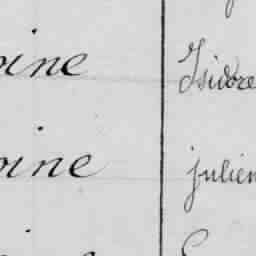 oine Isidore
oine julien